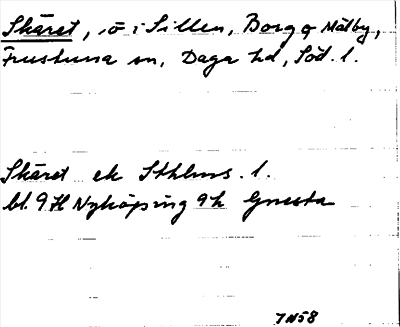 Skäret, ö i Sillen, Borg o Mälby,
Frustuna sn, Daga hd, Söd. l.
Skäret ek Sthlms. l.
bl. 9H Nyköping 9h Gnesta
7N58